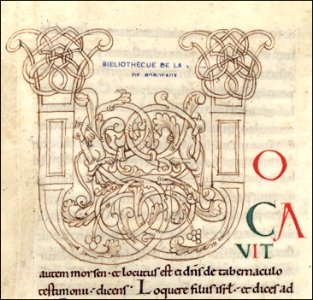 BIBLIOTHECUE DE LA
DE BORDEAUX
V
O
CA
VIT
autem moysen · et locutus est ei dns de tabernaculo
testimonii · dicens · Loquere filiis isrl · et dices ad